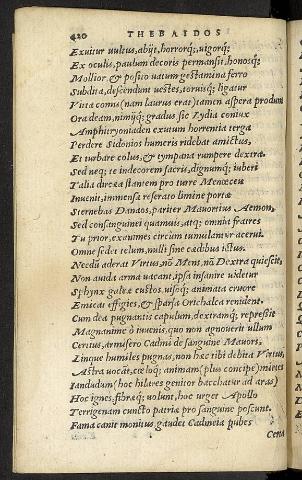 420 THEBAIDOS
Exuitur uultus, abijt, horrorq;, uigorq;
Ex oculis, paulum decoris permansit, honosq;
Mollior, & posito uatum gestamina ferro
Subdita, descendunt uestes, toruisq; ligatur
Vitta comis (nam laurus erat) tamen aspera produnt
Ora deam, nimijq; gradus sic Lydia coniux
Amphitryoniaden exutum horrentia terga
Perdere Sidonios humeris ridebat amictus,
Et turbare colus, & tympana rumpere dextra.
Sed neq; te indecorem sacris, dignumq; iuberi
Talia dircæa stantem pro turre Menœceu
Inuenit, immensæ reserato limine portæ
Sternebas Danaos, pariter Mauortius Aemon,
Sed consanguinei quamuis, atq; omnia fratres
Tu prior, exanimes circum cumulantur acerui.
Omne sedet telum, nulli sine cædibus ictus.
Necdū aderat Virtus, nō Mens, nō Dextra quiescit,
Non auida arma uacant, ipsa insanire uidetur
Sphynx galeæ custos, uisoq; animata cruore
Emicat effigies, & sparsa Orichalca renident.
Cum dea pugnantis capulum, dextramq; repressit
Magnanime ô iuuenis, quo non agnouerit ullum
Certius, armifero Cadmi de sanguine Mauors,
Linque humiles pugnas, non hæc tibi debita Virtus,
Astra uocāt, cœloq; animam (plus concipe) mittes
Iandudum (hoc hilares genitor bacchatur ad aras)
Hoc ignes, fibræq; uolunt, hoc urget Apollo
Terrigenam cuncto patriæ pro sanguine poscunt.
Fama canit monitus gaudet Cadmeia pubes
Certa